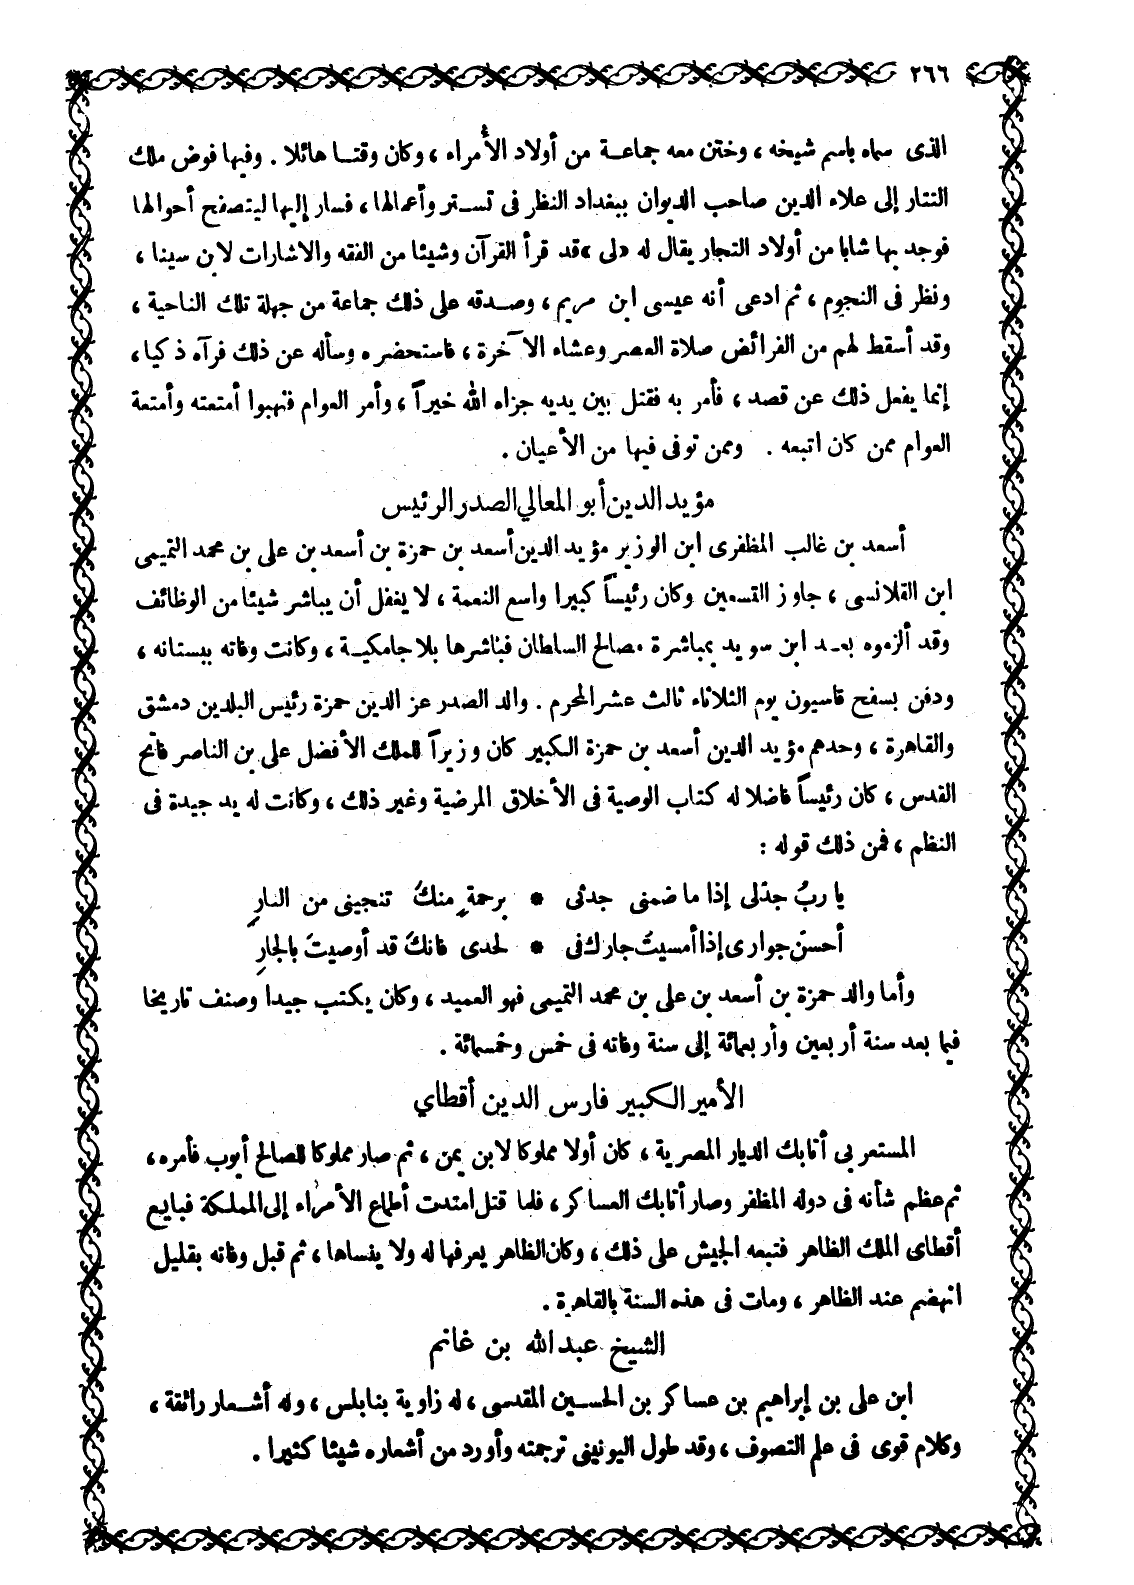 ٢٦٦
الذى سماه باسم شيخه ، وختن معه جماعـة من أولاد الأمراء ، وكان وقتـا هائلا . وفيها فوض ملك
التتار إلى علاء الدين صاحب الديوان ببغداد النظر فى تسـتر وأعمالها ، فسار إليها ليتصفح أحوالها
فوجد بها شابا من أولاد التجار يقال له «لى» قد قرأ القرآن وشيئا من الفقه والاشارات لابن سينا ،
ونظر فى النجوم ، ثم ادعى أنه عيسى ابن مريم ، وصـدقه على ذلك جماعة من جهلة تلك الناحية ،
وقد أسقط لهم من الفرائض صلاة العصر وعشاء الآخرة ، فاستحضره وسأله عن ذلك فرآه ذكيا ،
إنما يفعل ذلك عن قصد ، فأمر به فقتل بين يديه جزاه الله خيراً ، وأمر العوام فنهبوا أمتعته وأمتعة
العوام ممن كان اتبعه . وممن توفى فيها من الأعيان .
مؤيد الدين أبو المعالي الصدر الرئيس
أسعد بن غالب المظفرى ابن الوزير مؤيد الدين أسعد بن حمزة بن أسعد بن على بن محمد التميمى
ابن القلانسى ، جاوز التسعين وكان رئيساً كبيرا واسع النعمة ، لا يغفل أن يباشر شيئا من الوظائف
وقد ألزموه بعـد ابن سويد بمباشرة مصالح السلطان فباشرها بلا جامكيـة ، وكانت وفاته ببستانه ،
ودفن بسفح قاسيون يوم الثلاثاء ثالث عشر المحرم . والد الصدر عز الدين حمزة رئيس البلدين دمشق
والقاهرة ، وجدهم مؤيد الدين أسعد بن حمزة الكبير كان وزيراً للملك الأفضل على بن الناصر فاتح
القدس ، كان رئيساً فاضلا له كتاب الوصية فى الأخلاق المرضية وغير ذلك ، وكانت له يد جيدة فى
النظم ، فمن ذلك قوله :
يا ربُ جدْلى إذا ما ضمنى جدثى * برحمةٍ منكَ تنجينى من النارِ
أحسنْ جوارى إذا أمسيتُ جارك فى * لحدى فانكَ قد أوصيتَ بالجارِ
وأما والد حمزة بن أسعد بن على بن محمد التميمى فهو العميد ، وكان يكتب جيدا وصنف تاريخا
فيما بعد سنة أربعين وأربعمائة إلى سنة وفاته فى خمس وخمسمائة .
الأمير الكبير فارس الدين أقطاي
المستعربى أتابك الديار المصرية ، كان أولا مملوكا لابن يمن ، ثم صار مملوكا للصالح أيوب فأمره ،
ثم عظم شأنه فى دولة المظفر وصار أتابك العساكر ، فلما قتل امتدت أطماع الأمراء إلى المملكة فبايع
أقطاى الملك الظاهر فتبعه الجيش على ذلك ، وكان الظاهر يعرفها له ولا ينساها ، ثم قبل وفاته بقليل
انهضم عند الظاهر ، ومات فى هذه السنة بالقاهرة .
الشيخ عبد الله بن غانم
ابن على بن إبراهيم بن عساكر بن الحسـين المقدسى ، له زاوية بنابلس ، وله أشـعار رائقة ،
وكلام قوى فى علم التصوف ، وقد طول اليونينى ترجمته وأورد من أشعاره شيئا كثيرا .